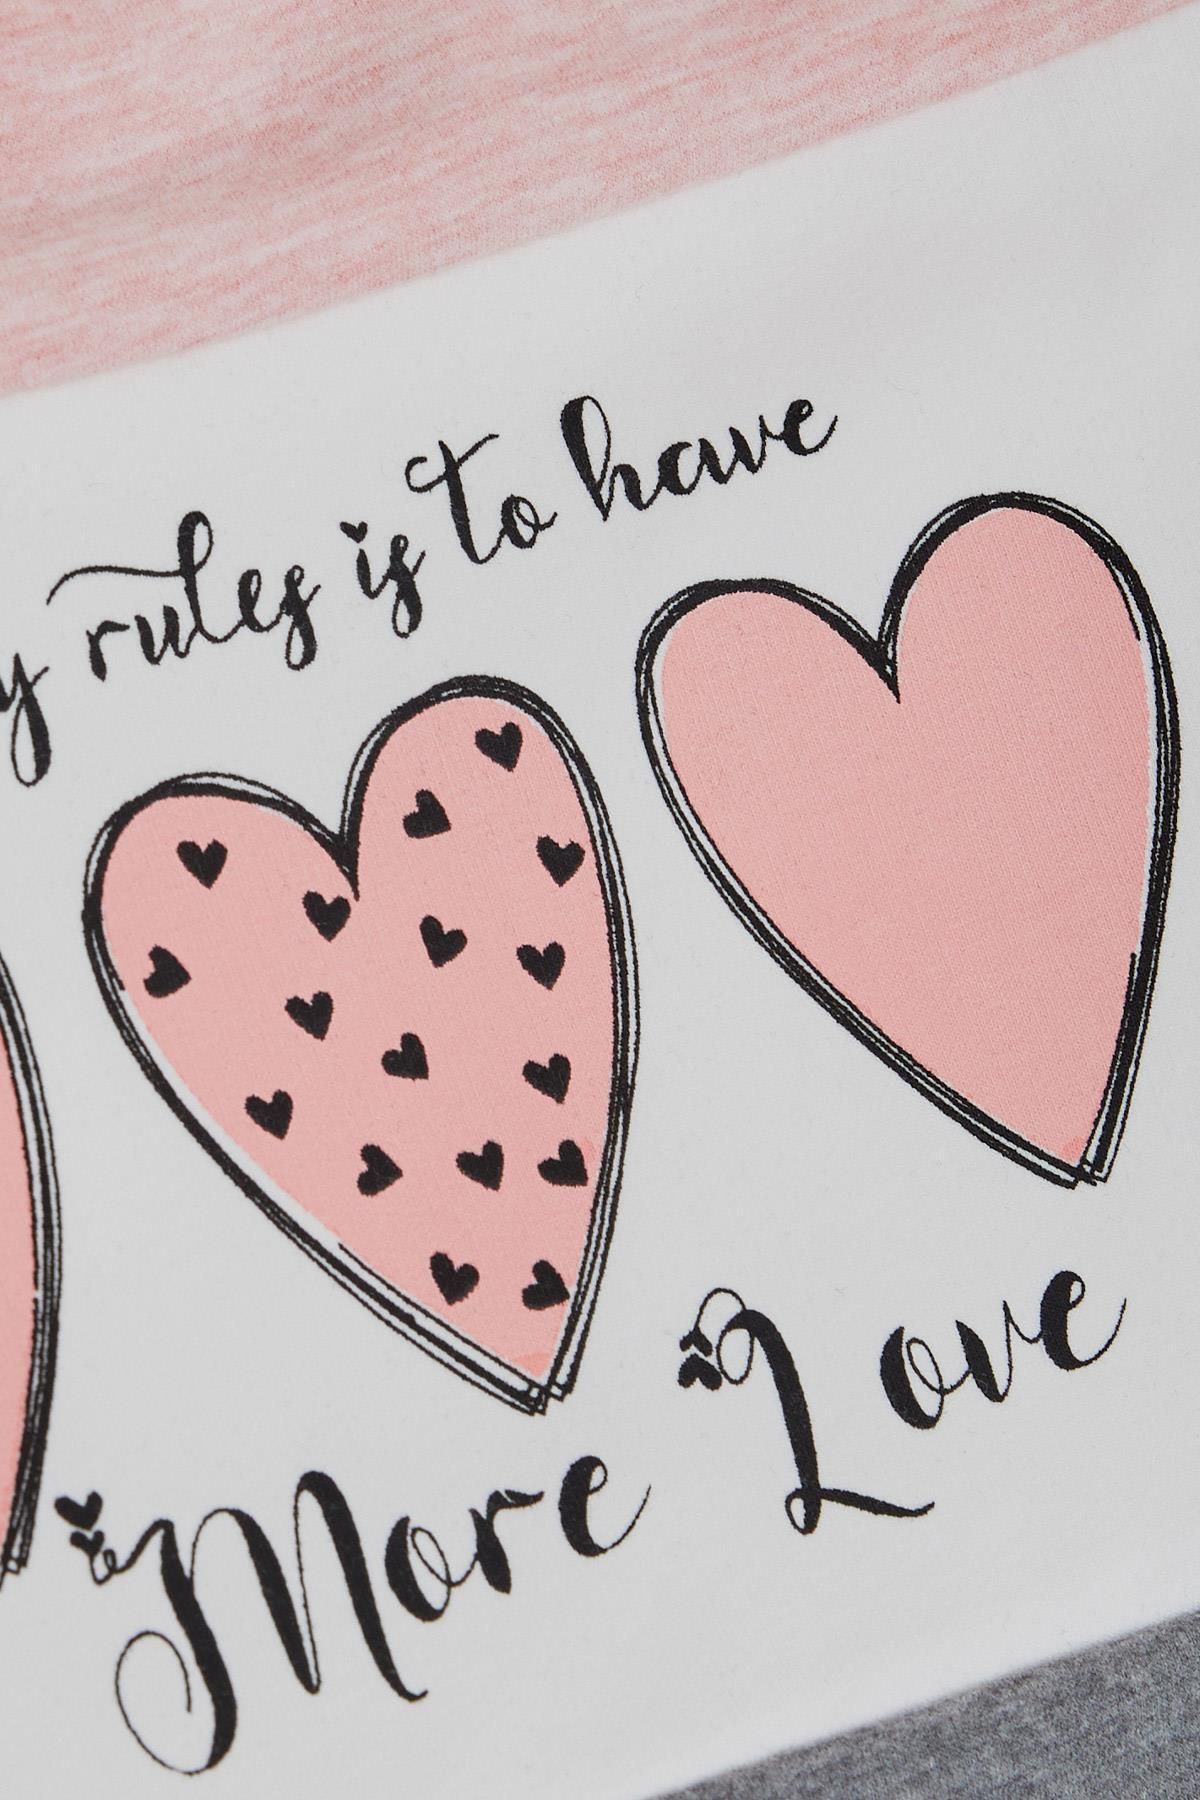 rules is to have
More Love